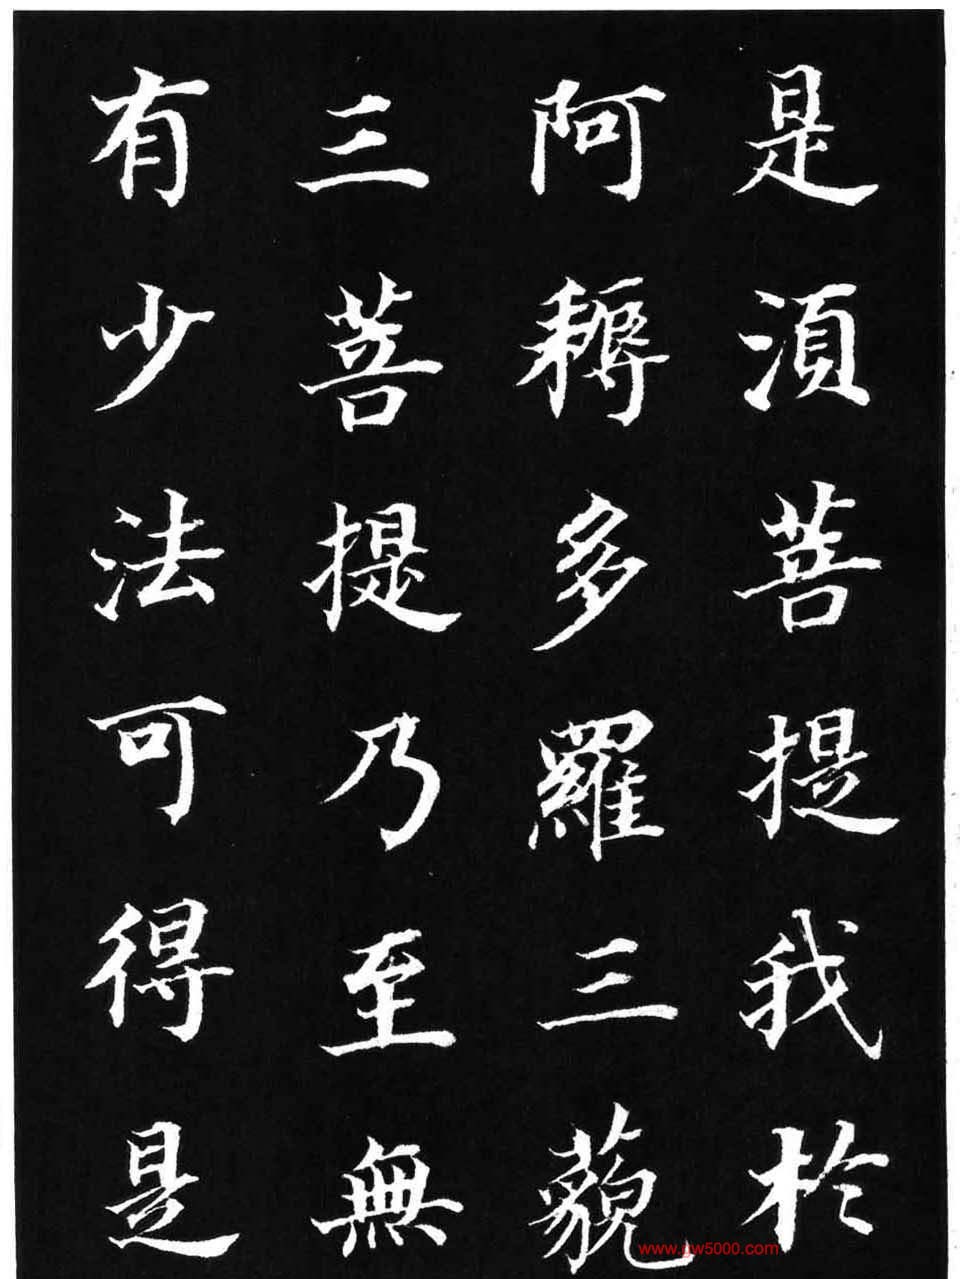 是須菩提我於
阿耨多羅三藐
三菩提乃至無
有少法可得是